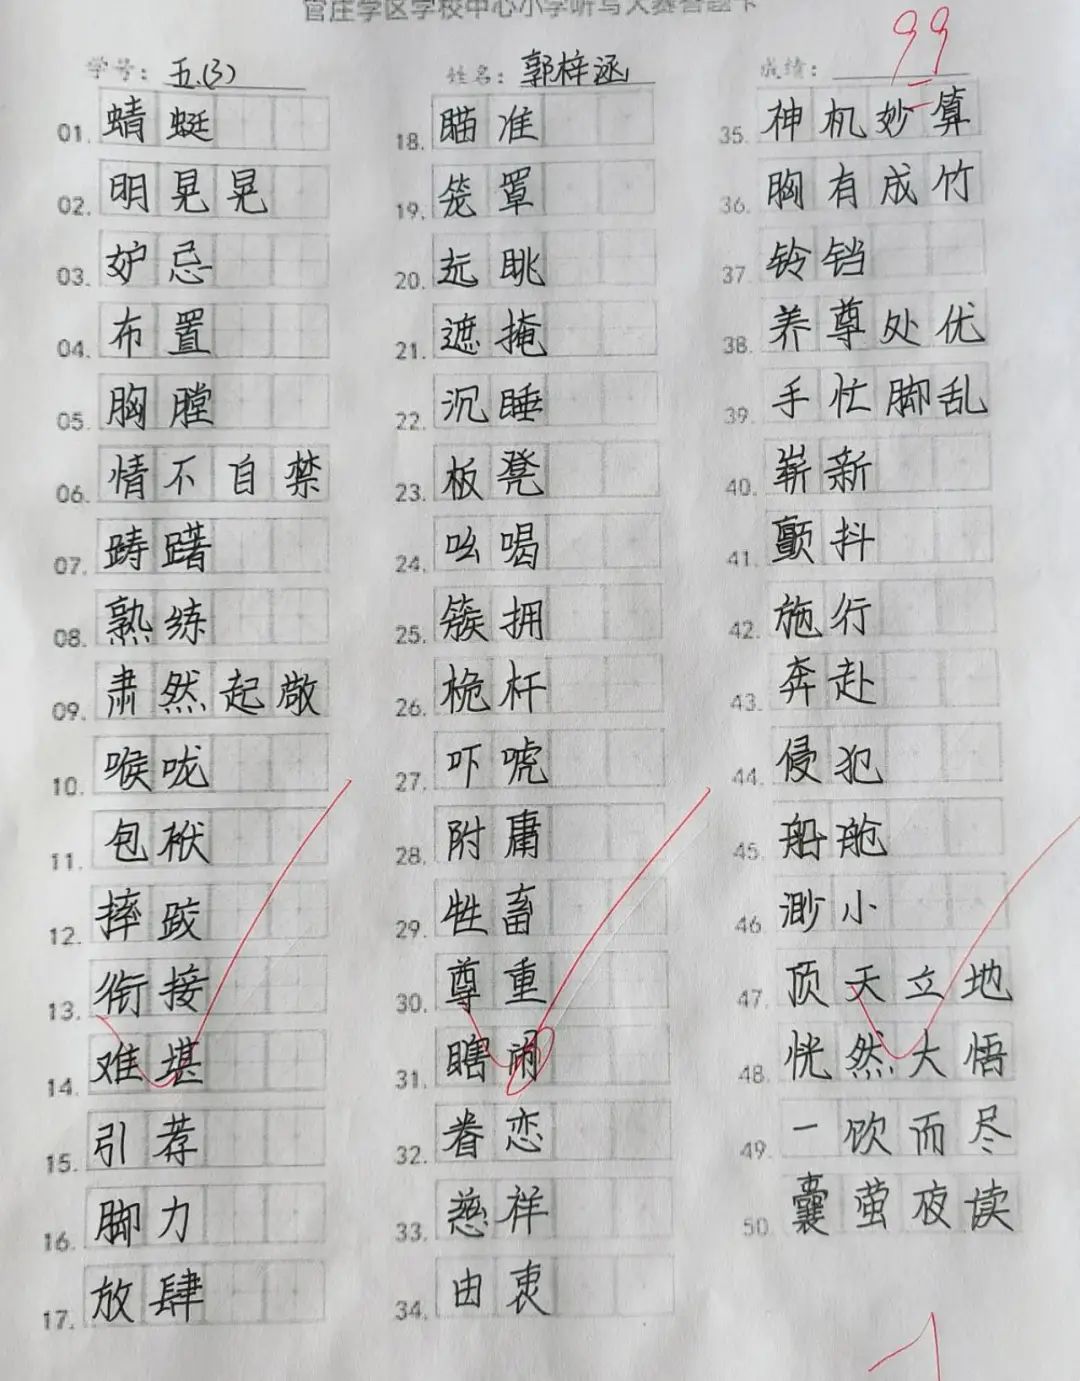 官庄学区学校中心小学听写大赛答题卡
学号: 五.(3) 姓名: 郭梓涵 成绩: 99
01. 蜻蜓
02. 明晃晃
03. 妒忌
04. 布置
05. 胸膛
06. 情不自禁
07. 踌躇
08. 熟练
09. 肃然起敞
10. 喉咙
11. 包袱
12. 摔跤
13. 衔接
14. 难堪
15. 引荐
16. 脚力
17. 放肆
18. 瞄准
19. 笼罩
20. 远眺
21. 遮掩
22. 沉睡
23. 板凳
24. 吆喝
25. 簇拥
26. 桅杆
27. 吓唬
28. 附庸
29. 牲畜
30. 尊重
31. 瞎闹
32. 眷恋
33. 慈祥
34. 由衷
35. 神机妙算
36. 胸有成竹
37. 铃铛
38. 养尊处优
39. 手忙脚乱
40. 崭新
41. 颤抖
42. 施行
43. 奔赴
44. 侵犯
45. 船舱
46. 渺小
47. 顶天立地
48. 恍然大悟
49. 一饮而尽
50. 囊萤夜读